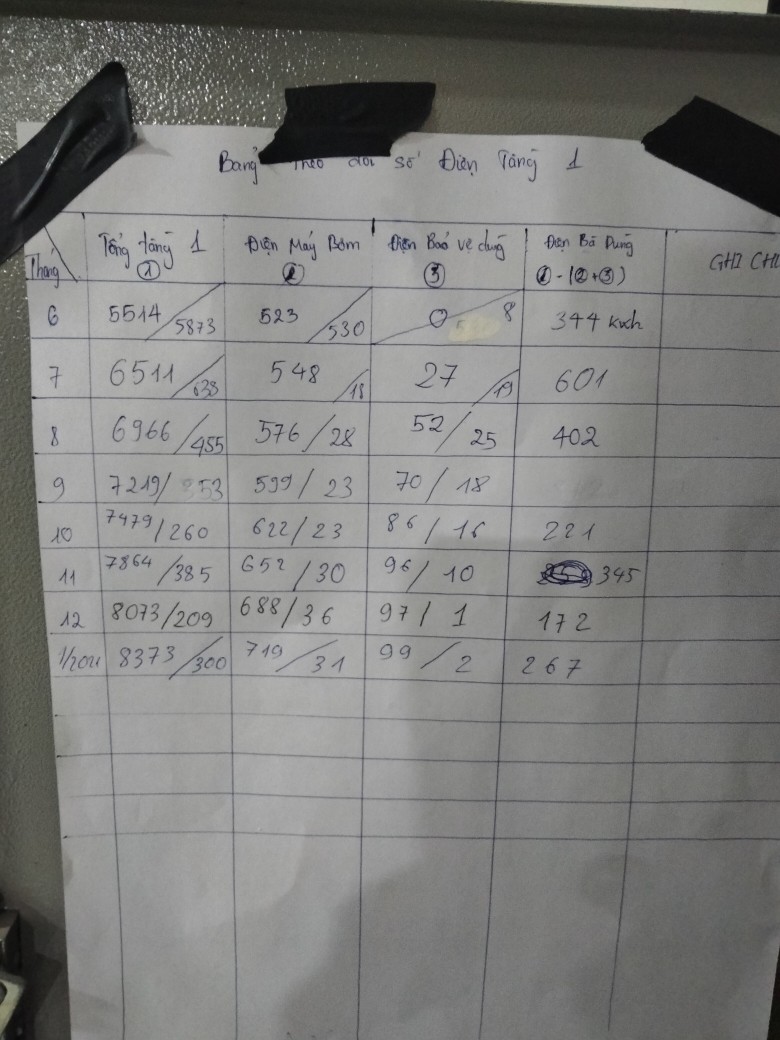 Bảng Theo dõi số Điện Tầng 1
Tháng Tổng tầng 1 ① Điện Máy Bơm ② Điện Bảo vệ dùng ③ Điện Bà Dùng ① - (②+③) GHI CH
6 5514/5873 523/530 0 8 344 kwh
7 6511/638 548/18 27/19 601
8 6966/455 576/28 52/25 402
9 7219/353 599/23 70/18
10 7479/260 622/23 86/16 221
11 7864/385 652/30 96/10 345
12 8073/209 688/36 97/1 172
8373/300 719/31 99/2 267